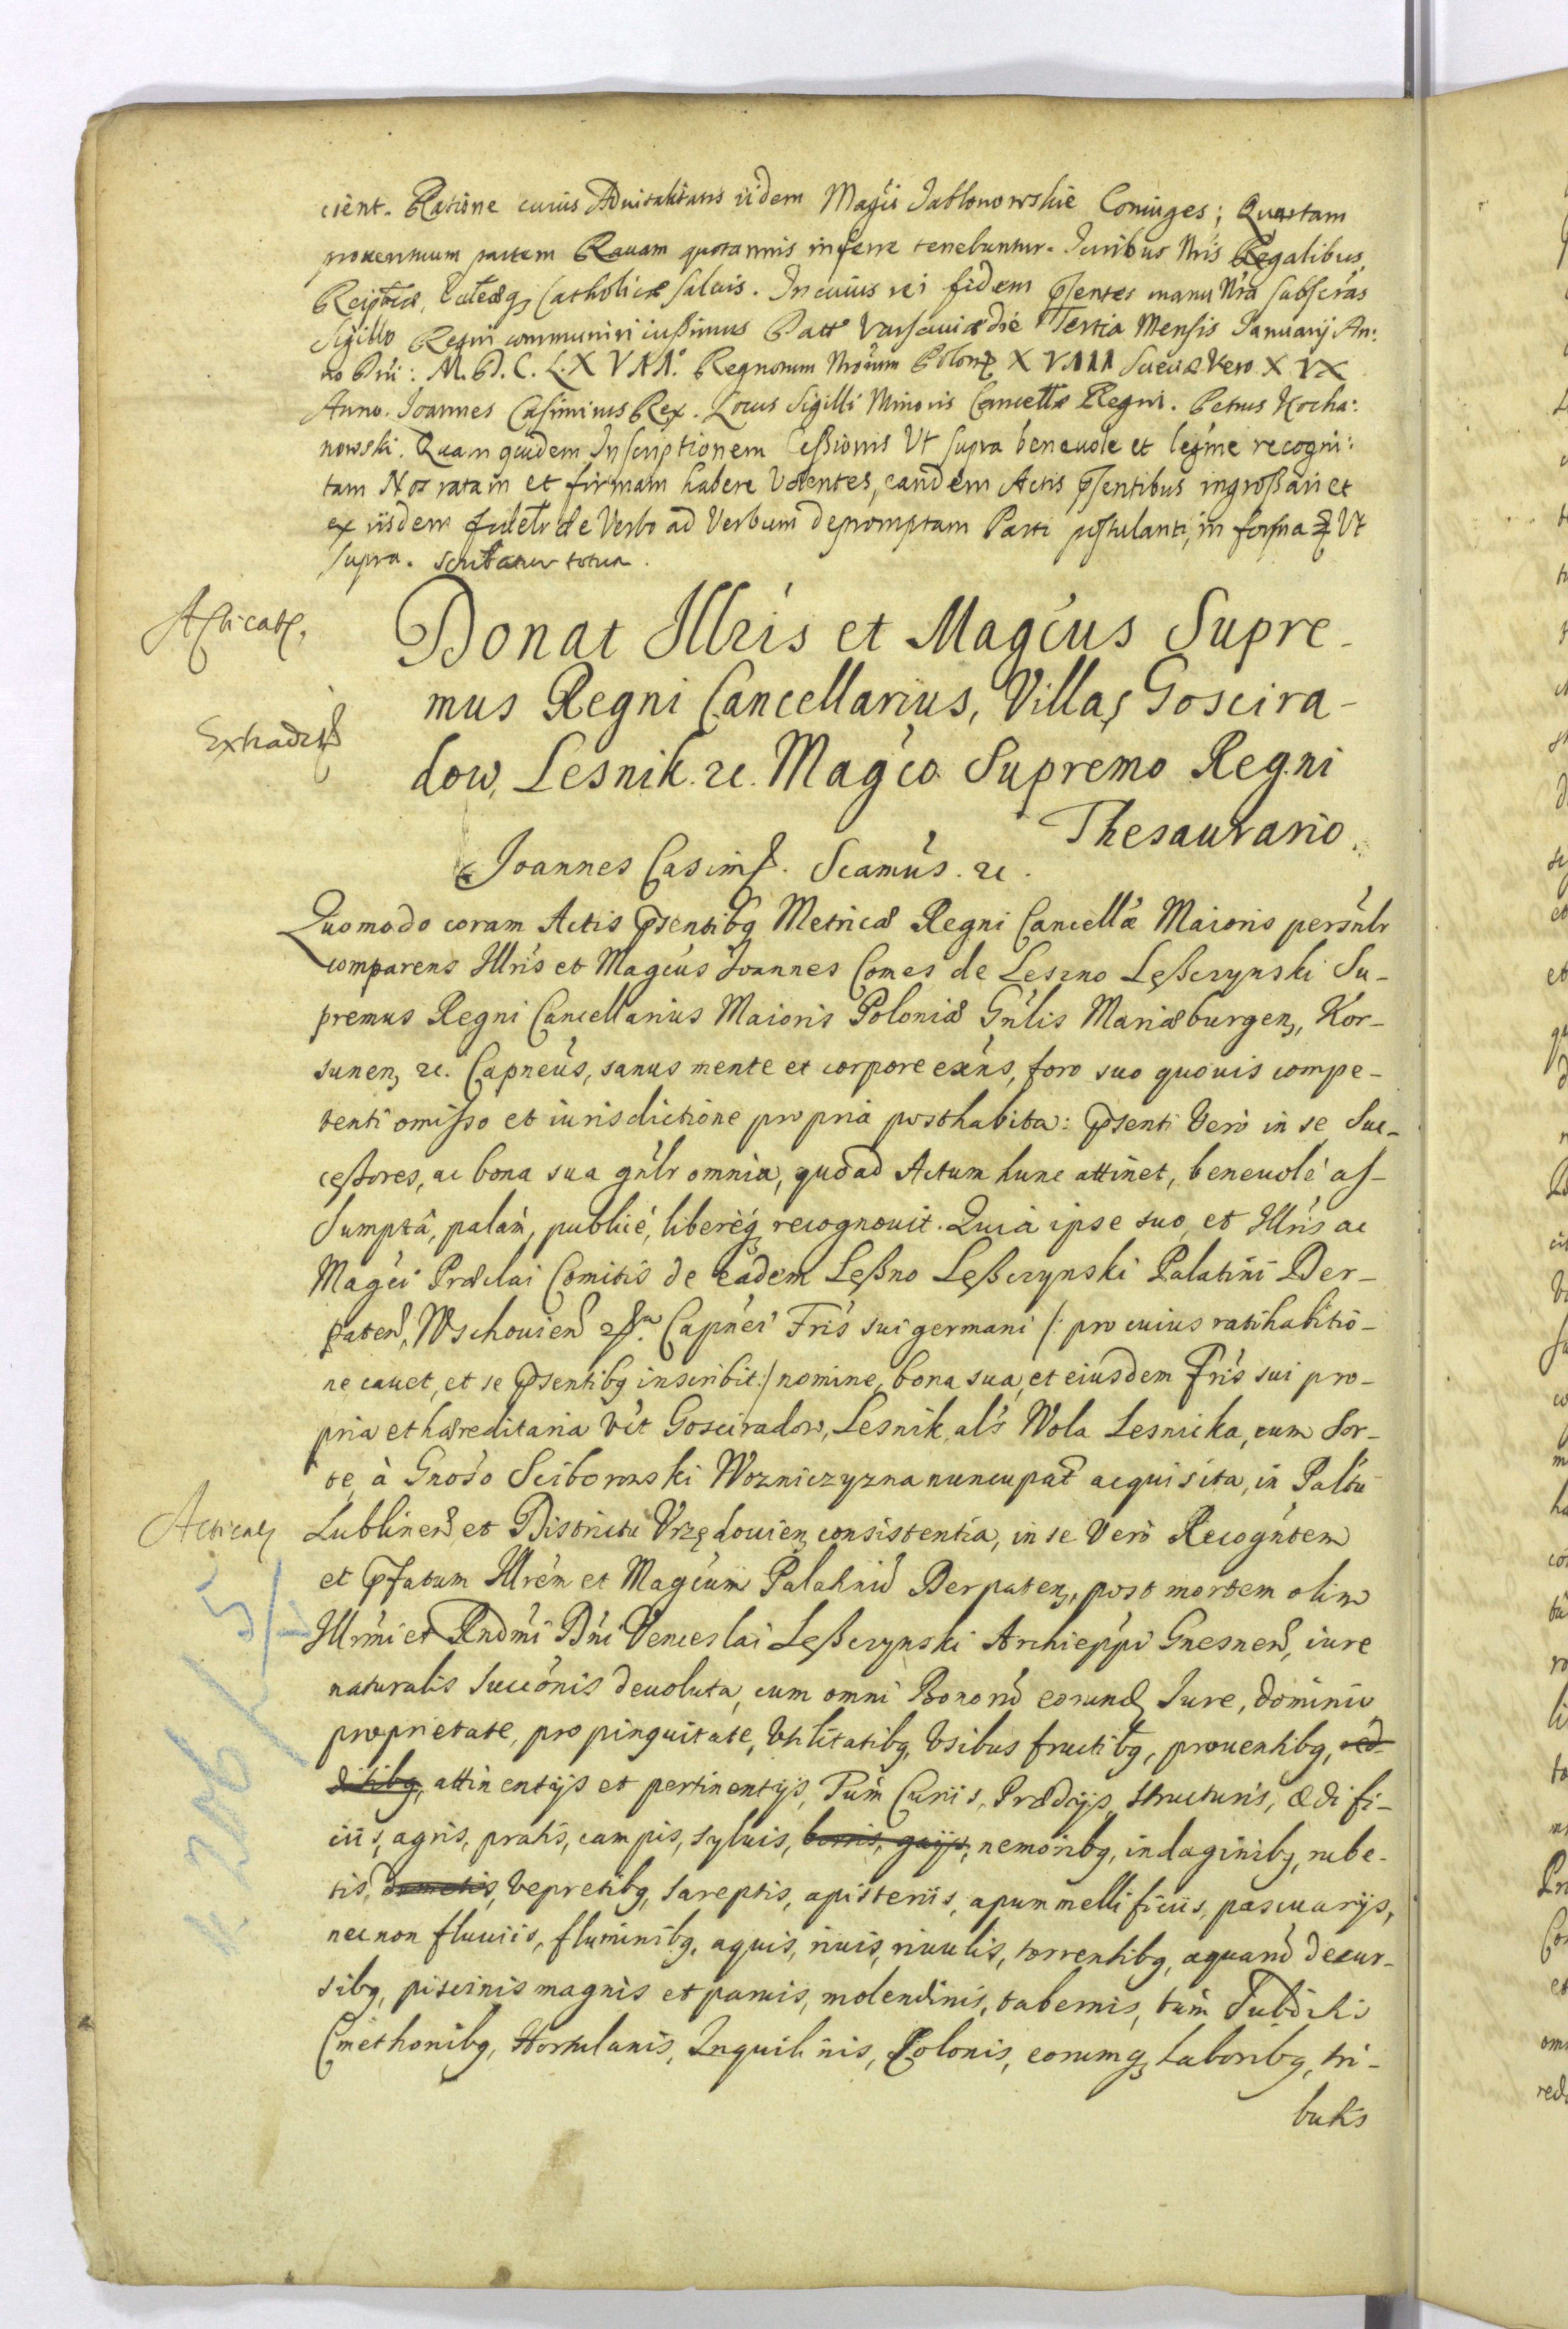 cient. Ratione cuius Aduitalitatis iidem Magci Jablonowskie Coniuges; Quartam
prouentuum partem Rauam quotannis inferre tenebuntur. Iuribus Nris Regalibus,
Reiptcæ, Eccleæq, Catholicæ saluis. In cuius rei fidem psentes manu Nra subscras
Sigillo Regni communiri iußimus Datt Varsauiæ die Tertia Mensis Januarij An:
no Dni: M.D.C.LXVII. Regnorum Nrorum Poloniæ XVIII Sueciæ Vero XIX
Anno. Joannes Casimirus Rex. Locus Sigilli Minoris Cancellæ Regni. Petrus Kocha:
nowski. Quam quidem Inscriptionem Ceßionis Vt supra beneuole et legme recogni:
tam Nos ratam et firmam habere Volentes, eandem Actis psentibus ingroßari et
ex iisdem fidelr de Verbo ad Verbum depromptam Parti postulanti, in forma Vt
supra. scribatur totum.
Donat Illris et Magcus Supre-
mus Regni Cancellarius, Villas Goscira-
dow, Lesnik. &c. Magco Supremo Regni
Thesaurario.
Joannes Casim. Scamus. &c.
Quomodo coram Actis psentibq Metricæ Regni Cancellæ Maioris persnlr
comparens Illris et Magcus Joannes Comes de Leszno Leßczynski Su-
premus Regni Cancellarius Maioris Poloniæ Gnlis Mariæburgen, Kor-
sunen, &c. Capneus, sanus mente et corpore exns, foro suo quouis compe-
tenti omisso et iurisdictione propria posthabita: psenti Vero in se, Suc-
ceßores, ac bona sua gnlr omnia, quoad Actum hunc attinet, beneuole as-
sumptâ, palàm, publicé, liberèq recognouit. Quia ipse suo, et Illris ac
Magci Præclai Comitis de eadem Leßno Leßczynski Palatini Der-
paten, Wschouien Capnei Fris sui germani /: pro cuius ratihabitio-
ne cauet, et se psentibq inscribit :/ nomine, bona sua, et eiusdem Fris sui pro-
pria et hæreditaria vct Gosciradow, Lesnik, als Wola Lesnicka, cum Sor-
te, à Gnoso Sciborowski Wozniczyzna nuncupat acquisita, in Paltu
Lublinen et Districtu Vrzędouien consistentia, in se Vero Recogntem
et pfatum Illrem et Magcum Palatnu Derpaten, post mortem olim
Illrmi et Rndmi Dni Venceslai Leßczynski Archieppi Gnesnen, iure
naturalis succonis deuoluta, cum omni Bonoru eorund Iure, dominio
proprietate, propinquitate, Vtilitatibq, Vsibus fructibq, prouentibq, red-
ditibq, attinentijs et pertinentijs, Tum Curiis, Prædijs, structuris, ædifi-
ciis, agris, pratis, campis, syluis, borris, gaijs, nemoribq, indaginibq, rube-
tis, dumetis, Vepretibq, sareptis, apisteriis, apum mellificiis, pascuarijs,
necnon fluuiis, fluminibq, aquis, riuis, riuulis, torrentibq, aquaru decur-
sibq, piscinis magnis et paruis, molendinis, tabernis, tum Subditis
Cmethonibq, Hortulanis, Inquilinis, Colonis, eorumq, Laboribq, tri-
butis
Acticat,
Extradit
Acticat